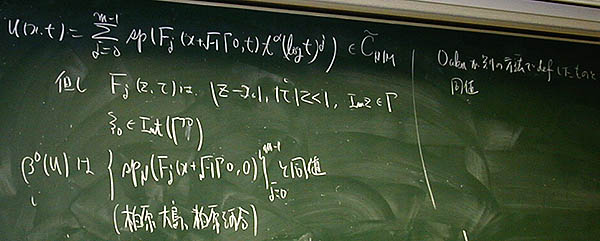 u(x,t) = Σ_{j=0}^{m-1} sp(F_j(x+√-1Γ0,t) t^α (log t)^j) ∈ C̃_{N|M}
但し F_j(z,τ) は |z-x_0|, |τ|<1, Im z ∈ Γ
ξ_0 ∈ Int(Γ^o)
β^0(u) は { sp_N(F_j(x+√-1Γ0,0)) }_{j=0}^{m-1} と同値
(柏原 大島, 柏原 河合)
Oaku が別の方法で def したのと
同値